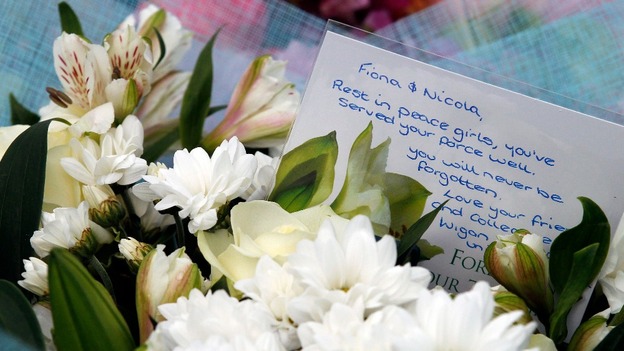 Fiona & Nicola,
Rest in peace girls, you've
served your force well.
you will never be
forgotten.
Love your frie
and colle
Wigan